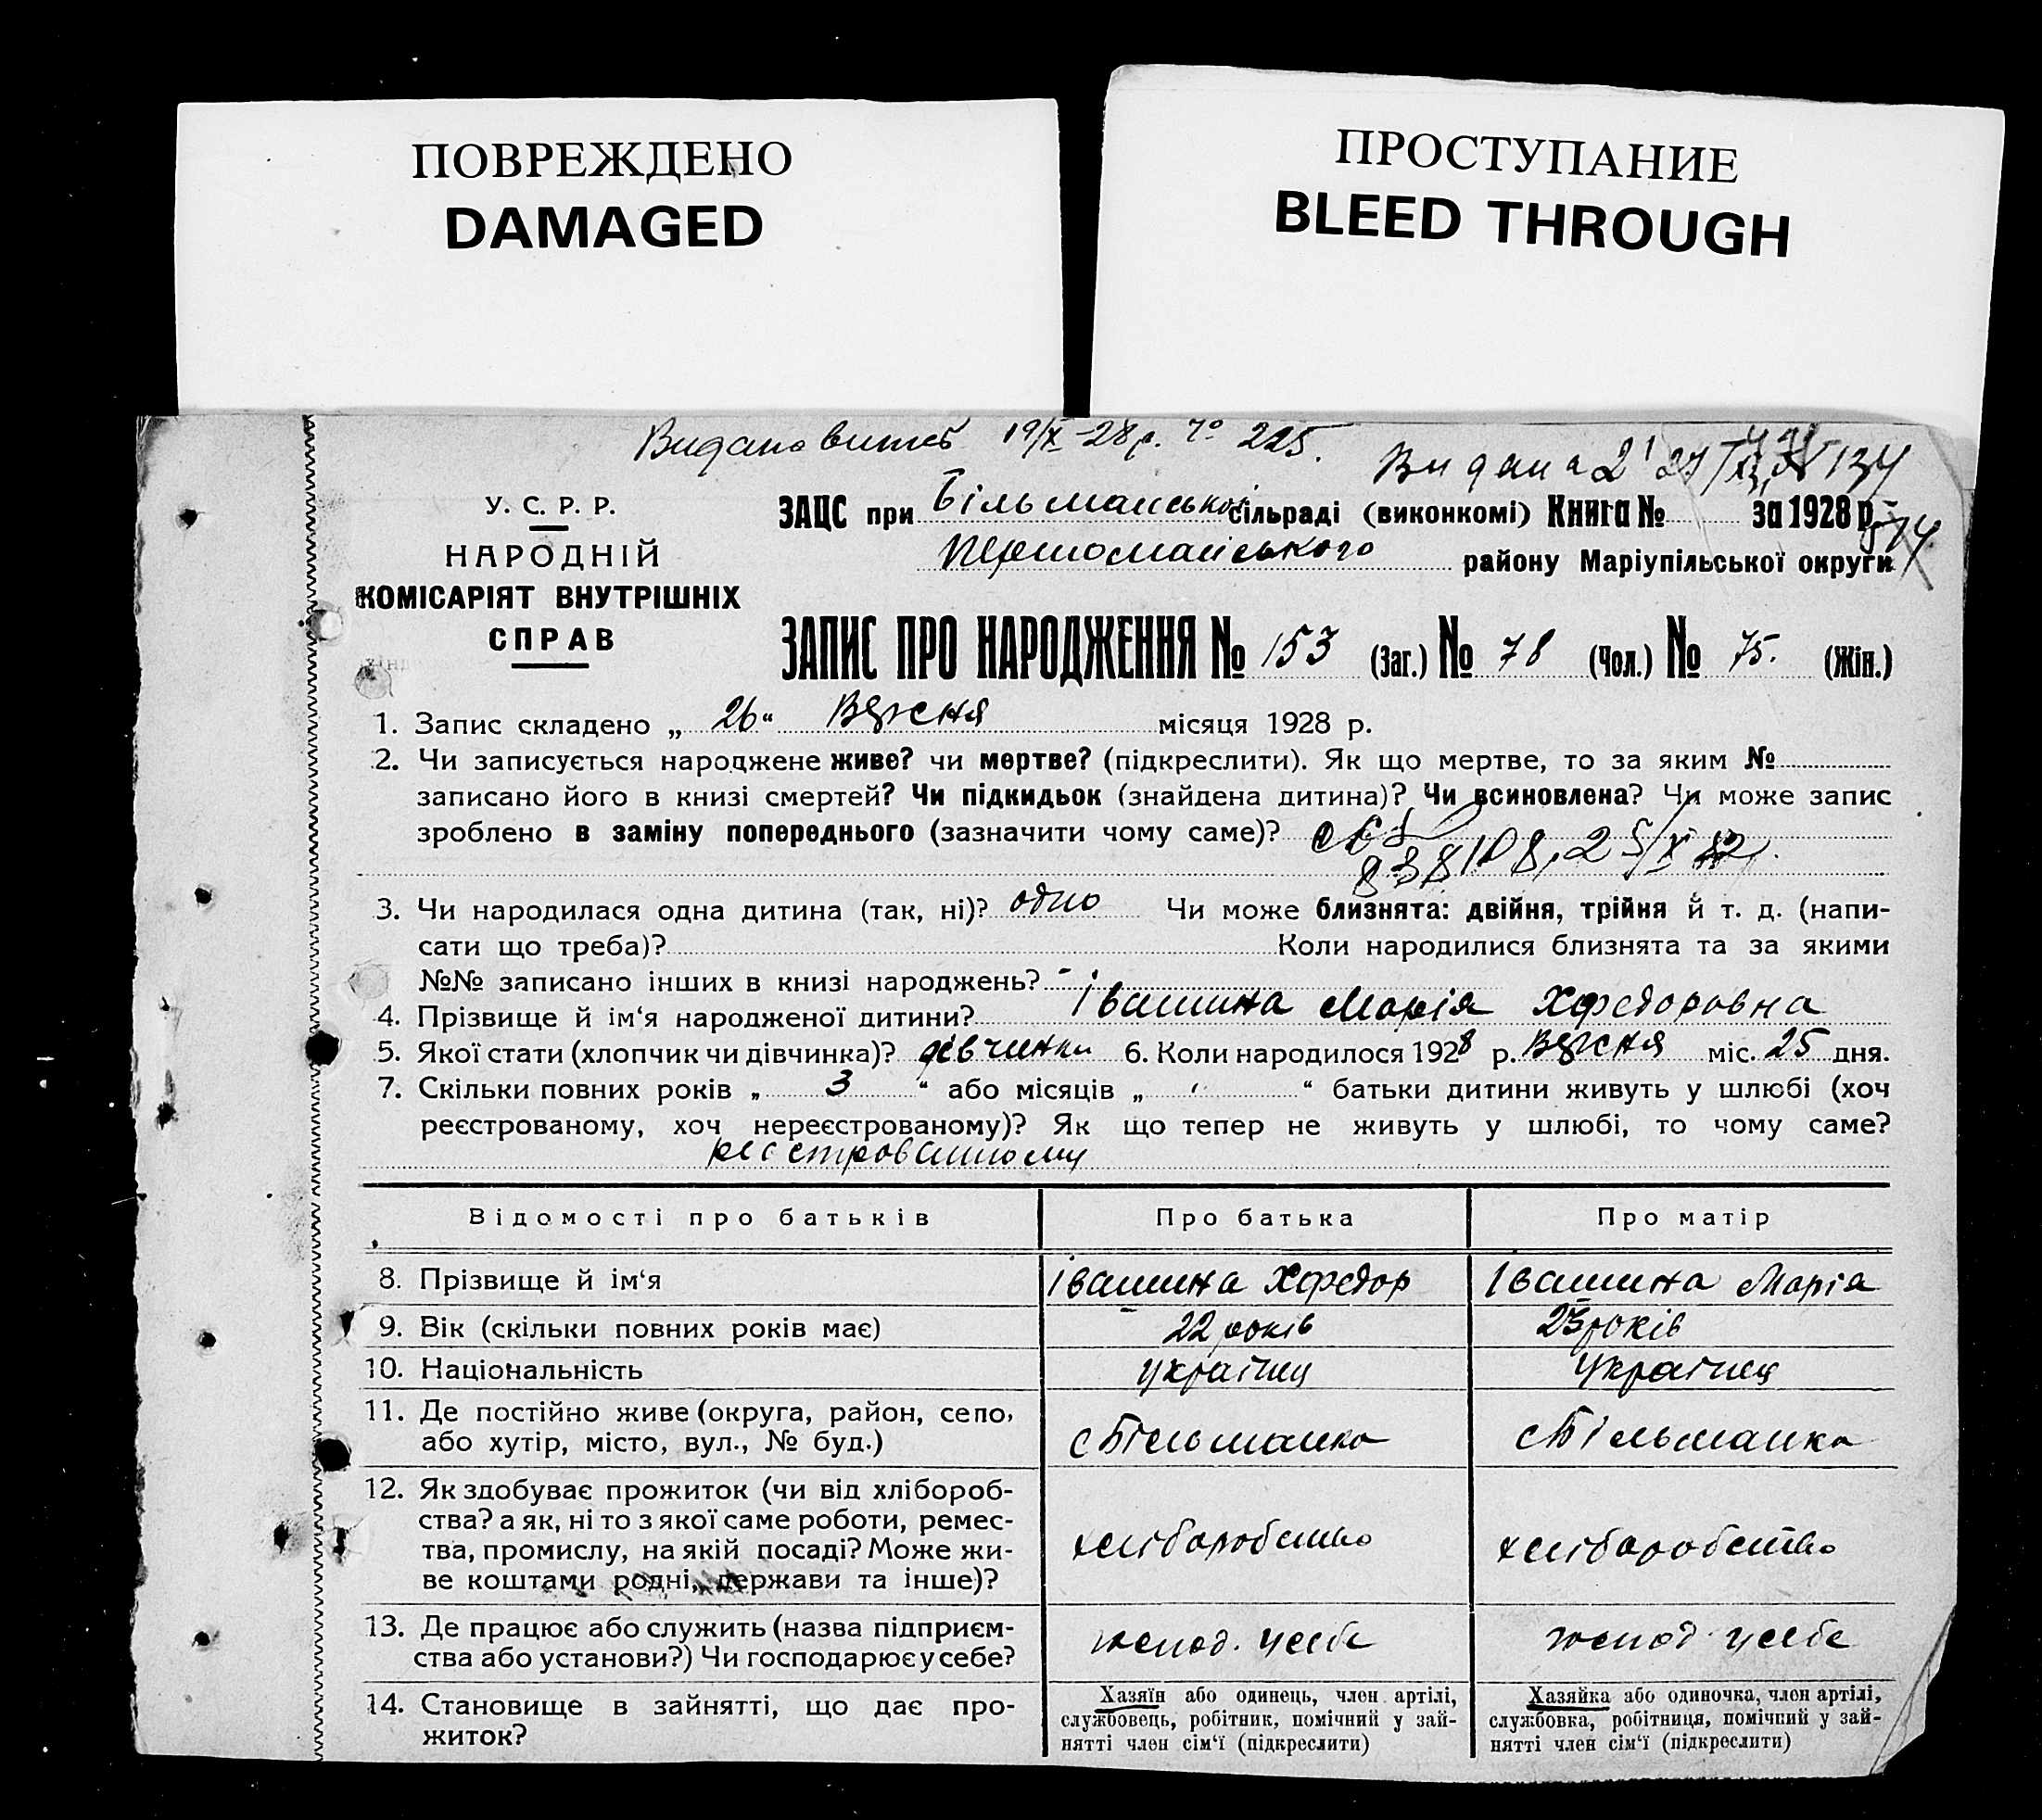 ПОВРЕЖДЕНО
DAMAGED
ПРОСТУПАНИЕ
BLEED THROUGH
Видано витяг 19/X-28р. № 225.
Видана 2
У. С. Р. Р.
НАРОДНІЙ
КОМІСАРІЯТ ВНУТРІШНІХ
СПРАВ
ЗАЦС при Більманській сільраді (виконкомі) Книга № за 1928 р.
Першоманського району Маріупільської округи
ЗАПИС ПРО НАРОДЖЕННЯ № 153 (Заг.) № 78 (Чол.) № 75. (Жін.)
1. Запис складено „ 26 “ Вересня місяця 1928 р.
2. Чи записується народжене живе? чи мертве? (підкреслити). Як що мертве, то за яким №
записано його в книзі смертей? Чи підкидьок (знайдена дитина)? Чи всиновлена? Чи може запис
зроблено в заміну попереднього (зазначити чому саме)?
3. Чи народилася одна дитина (так, ні)? одно Чи може близнята: двійня, трійня й т. д. (напи-
сати що треба)? Коли народилися близнята та за якими
№№ записано інших в книзі народжень? -
4. Прізвище й ім‘я народженої дитини? Івашина Марія Хфедоровна
5. Якої стати (хлопчик чи дівчинка)? дівчинки 6. Коли народилося 1928 р. Вересня міс. 25 дня.
7. Скільки повних років „ 3 “ або місяців „ “ батьки дитини живуть у шлюбі (хоч
реєстрованому, хоч нереєстрованому)? Як що тепер не живуть у шлюбі, то чому саме?
реєстрованному
Відомості про батьків Про батька Про матір
8. Прізвище й ім‘я Івашина Хфедор Івашина Марія
9. Вік (скільки повних років має) 22 років 23 років
10. Національність українец українец
11. Де постійно живе (округа, район, село, або хутір, місто, вул., № буд.) с Більманка с Більманка
12. Як здобуває прожиток (чи від хлібороб-
ства? а як, ні то з якої саме роботи, ремес-
тва, промислу, на якій посаді? Може жи-
ве коштами родні, держави та інше)?
хліборобство хліборобство
13. Де працює або служить (назва підприєм-
ства або установи?) Чи господарює у себе?
у себе у себе
14. Становище в зайнятті, що дає про-
житок?
Хазяїн або одинець, член артілі,
службовець, робітник, помічний у зай-
нятті член сім‘ї (підкреслити)
Хазяйка або одиночка, член артілі,
службовка, робітниця, помічний у зай-
нятті член сім‘ї (підкреслити)